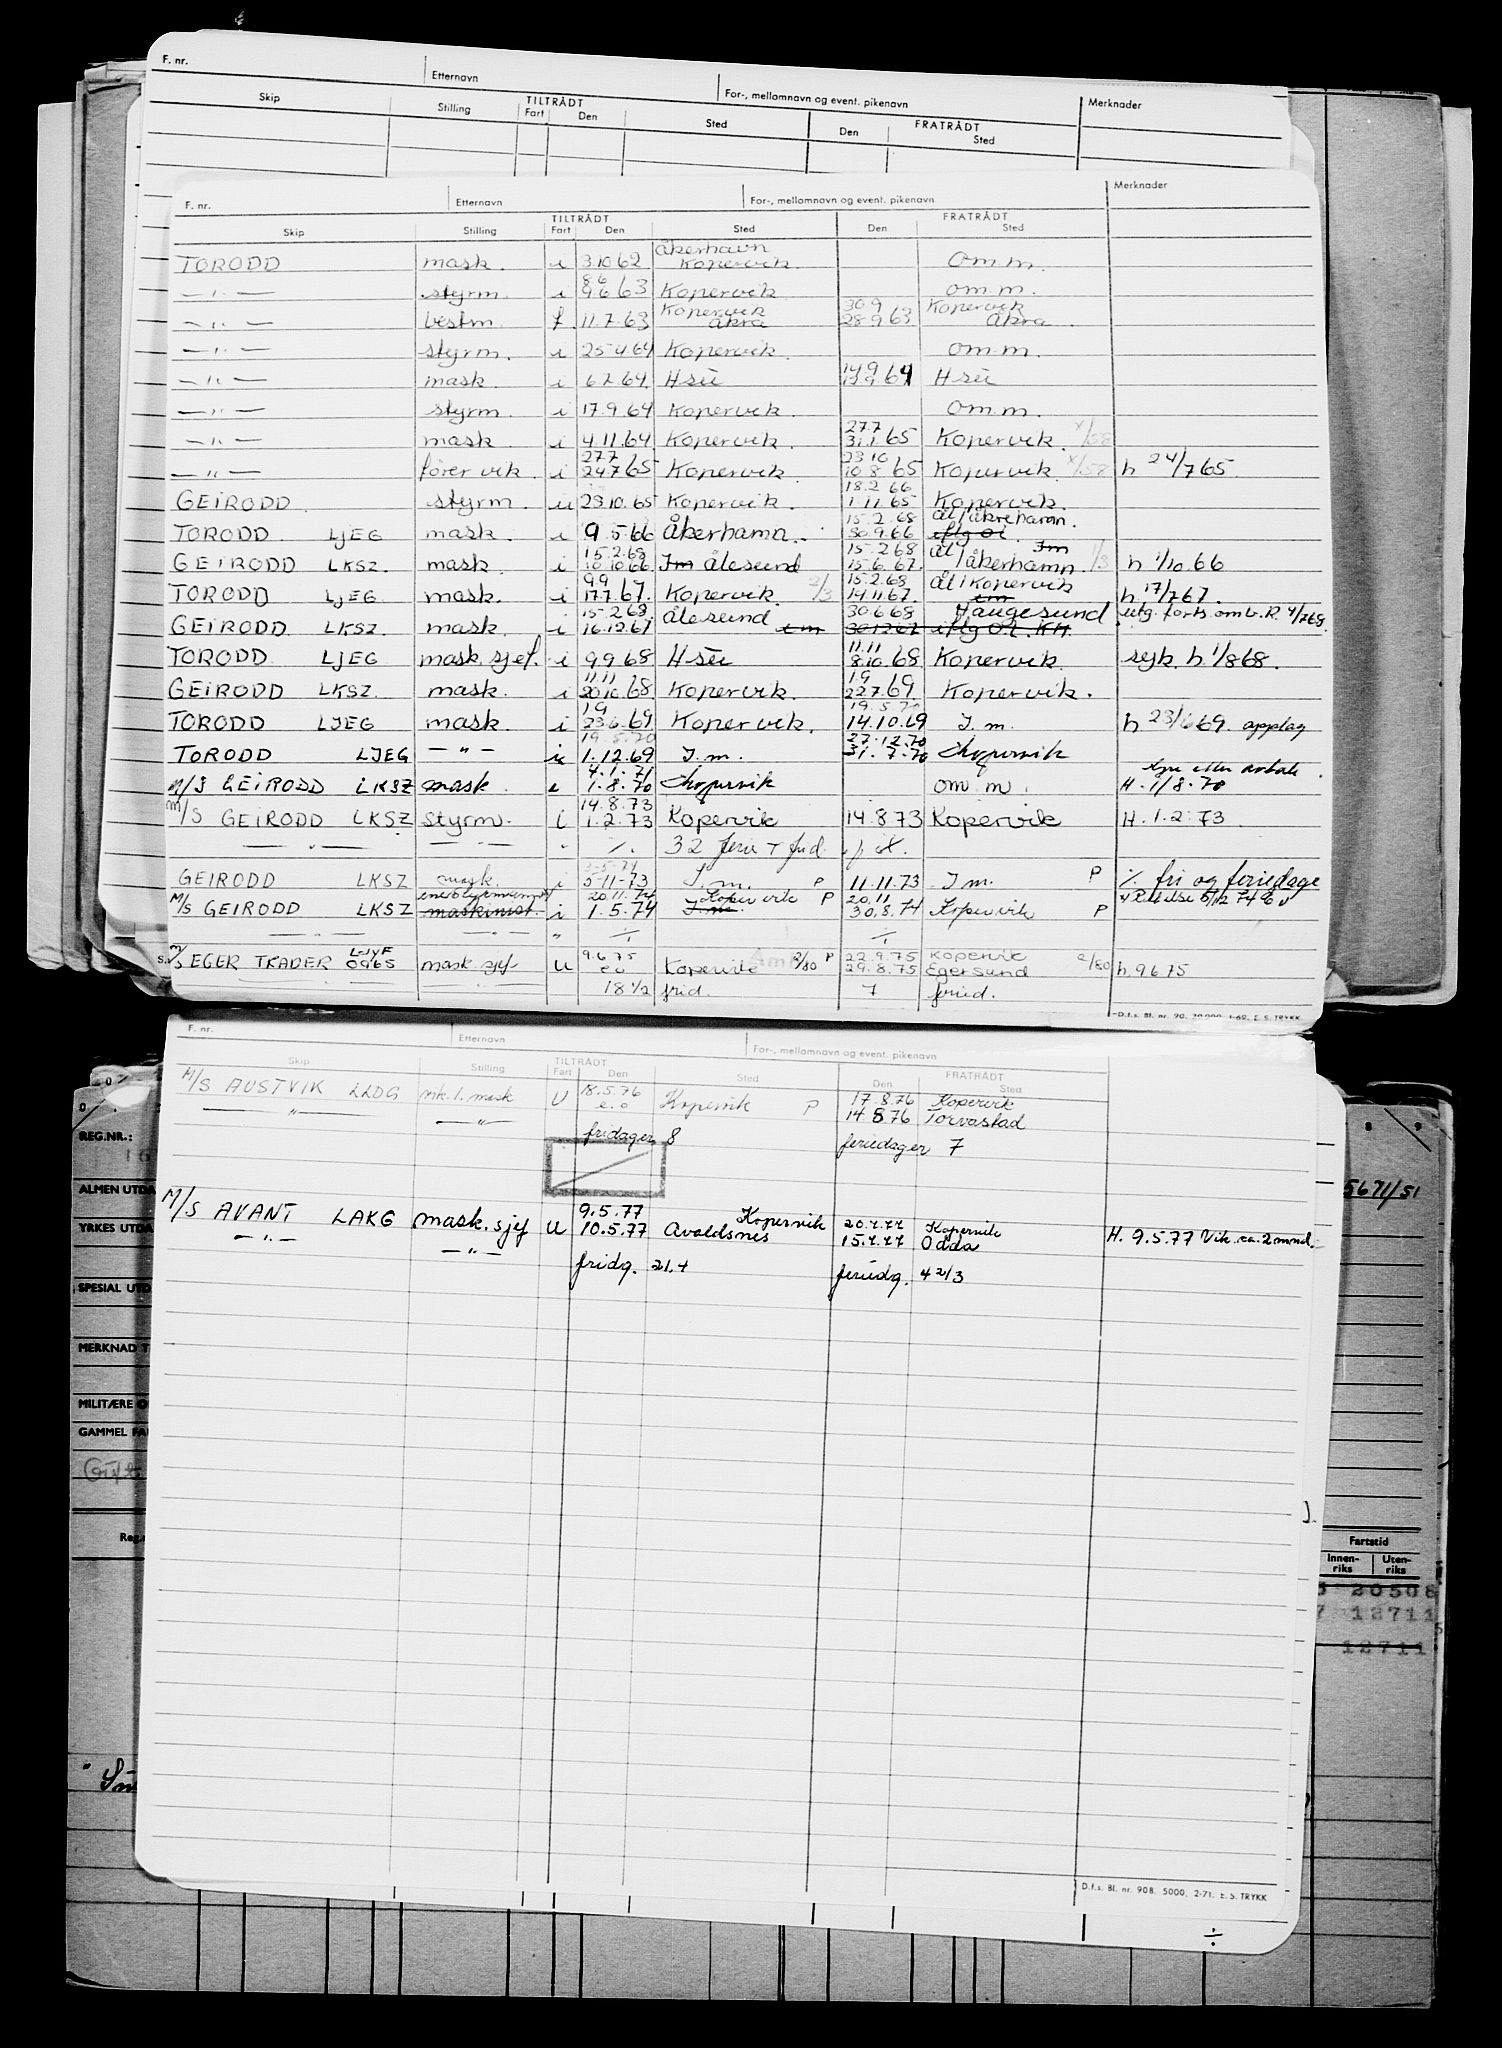 F. nr. Etternavn For-, mellomnavn og event. pikenavn Merknader
Skip Stilling TILTRÅDT Fart Den Sted FRATRÅDT Den Sted
F. nr. Etternavn For-, mellomnavn og event. pikenavn Merknader
Skip Stilling TILTRÅDT Fart Den Sted FRATRÅDT Den Sted
Åkerhavn
TORODD mask. i 3.10.62 Kopervik. om.m.
8.6
—"— styrm. i 9.6.63 Kopervik om.m.
Kopervik 30.9 Kopervik
—"— bestm. f 11.7.63 Åkra 28.9.63 Åkra.
—"— styrm. i 25.4.64 Kopervik. om.m.
14.9
—"— mask. i 6.7.64. H su 64 H su
—"— styrm. i 17.9.64 Kopervik. om.m.
27.7
—"— mask. i 4.11.64. Kopervik. 31.1.65 Kopervik. x/58
27.7 23.10
—"— fører vik. i 24.7.65 Kopervik. 10.8.65 Kopervik. x/58 h 24/7.65.
18.2.66
GEIRODD. styrm. u 23.10.65 Kopervik. 1.11.65 Kopervik.
15.2.68 Ål/åkrehamn.
TORODD LJEG mask. i 9.5.66 Åkerhamn. 30.9.66
15.2.68 15.2.68 Ål Im
GEIRODD LKSZ. mask. i 10.10.66. Im Ålesund 15.6.67. åkerhamn. 1/3 h 1/10.66
9.9 15.2.68 Ål/Kopervik
TORODD LJEG. mask. i 17.7.67. Kopervik. 2/3 14.11.67. h.17/7.67.
15.2.68 Ålesund 30.6.68 Haugesund
GEIRODD LKSZ. mask. i 16.12.67 30.12.67 iflg O.R. KH utg. forts. omb. R. 4/7.68.
11.11
TORODD LJEG mask. sjef. i 9.9.68 H su 8.10.68 Kopervik. syk. h.1/8.68.
11.11 1.9
GEIRODD LKSZ. mask. i 20.10.68. Kopervik. 22.7.69. Kopervik.
1.9 19.5.70
TORODD LJEG mask i 23.6.69 Kopervik. 14.10.69 I.m. h 23/6.69. opplag
19.5.70 27.12.70
TORODD LJEG —"— i 1.12.69 I.m. 31.7.70 Kopervik
4.1.71
M/S GEIRODD LKSZ mask. i 1.8.70 Kopervik om m. H. 1/8.70
14.8.73
M/S GEIRODD LKSZ styrm. i 1.2.73 Kopervik 14.8.73 Kopervik H. 1.2.73.
—"— —"— " ./. 32
3-5-74
GEIRODD LKSZ mask. i 5-11-73 I.m. P 11.11.73 I.m. P ./. fri og feriedage
20.11.74 Kopervik P 20.11
M/S GEIRODD LKSZ maskinist. i 1.5.74 I.m. 30.8.74 Kopervik P
—"— —"— " ./. ./.
LJYF 9.6.75 P 22.9.75 Kopervik
M/S EGER TRADER 0965 mask. sjef U e.o Kopervik 2/80 29.8.75 Egersund 2/80 h. 9.6.75
—"— —"— 18 1/2 frid. 7 feried.
D.f.s. Bl. nr. 90. 20.000. 1-69. E. S. TRYKK
F. nr. Etternavn For-, mellomnavn og event. pikenavn
Skip Stilling TILTRÅDT Fart Den Sted FRATRÅDT Den Sted
M/S AUSTVIK LLDG vik. 1. mask U 18.5.76 17.8.76 Kopervik
—"— —"— e.o Kopervik P 14.8.76 Torvastad
fridager 8 feriedager 7
9.5.77 Kopervik 20.7.77 Kopervik
M/S AVANT LAKG mask. sjef U 10.5.77 Avaldsnes 15.7.77 Odda H. 9.5.77 Vik. ca. 2 mnd.
—"— —"—
fridg. 21.4 feriedg. 4 2/3
D.f.s. Bl. nr. 90B. 5000. 2-71. E. S. TRYKK
REG.NR.:
ALMEN UTDA
YRKES UTDA
SPESIAL UTD
MERKNAD T
MILITÆRE O
GAMMEL FA
Gift
Reg.
8 9
5671/51
Fartstid
Innenriks Utenriks
20508
12711
12711
÷